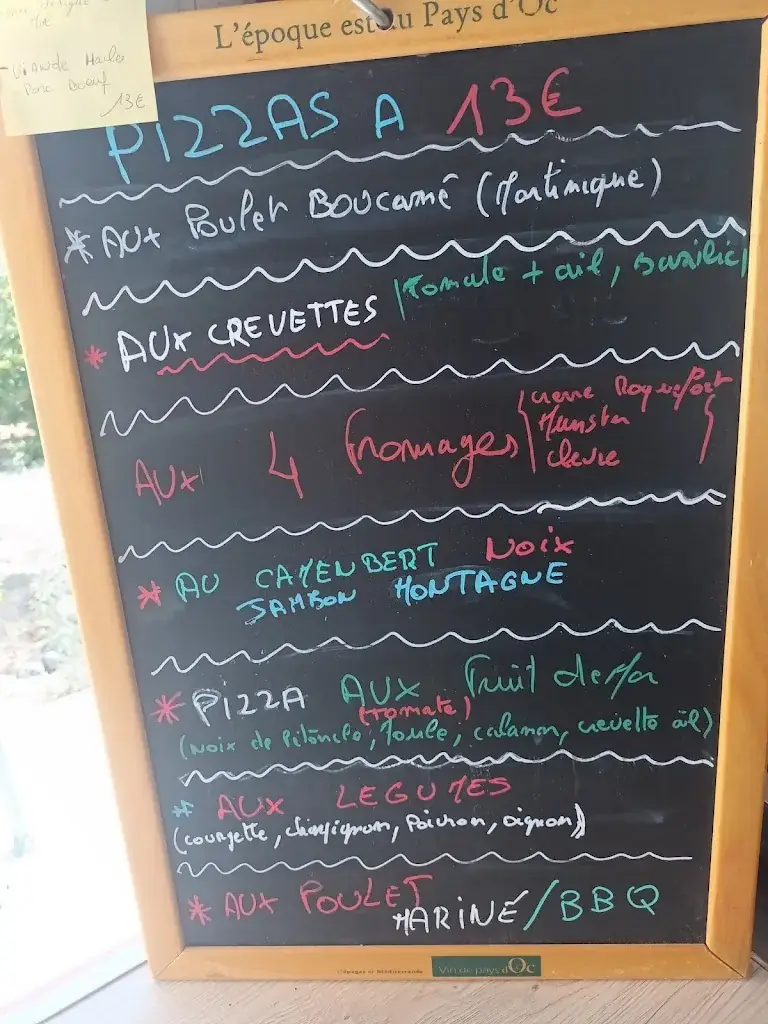 L'époque est au Pays d'Oc
1€
- Viande Hachée
Porc Boeuf
13€
PIZZAS A 13€
* AUX Poulet BOUCANÉ (Martinique)
* AUX CREVETTES (Tomate + ail, basilic)
AUX 4 Fromages (creme Roquefort
Munster
chevre)
* AU CAMENBERT NOIX
JAMBON MONTAGNE
* PIZZA AUX Fruit de Mer
(tomate)
(Noix de Pétoncle, Moule, calamar, crevette ail)
* AUX LEGUMES
(courgette, champignon, Poivron, oignon)
* AUX POULET
MARINÉ / BBQ
Cépages et Méditerranée
Vin de pays d'Oc